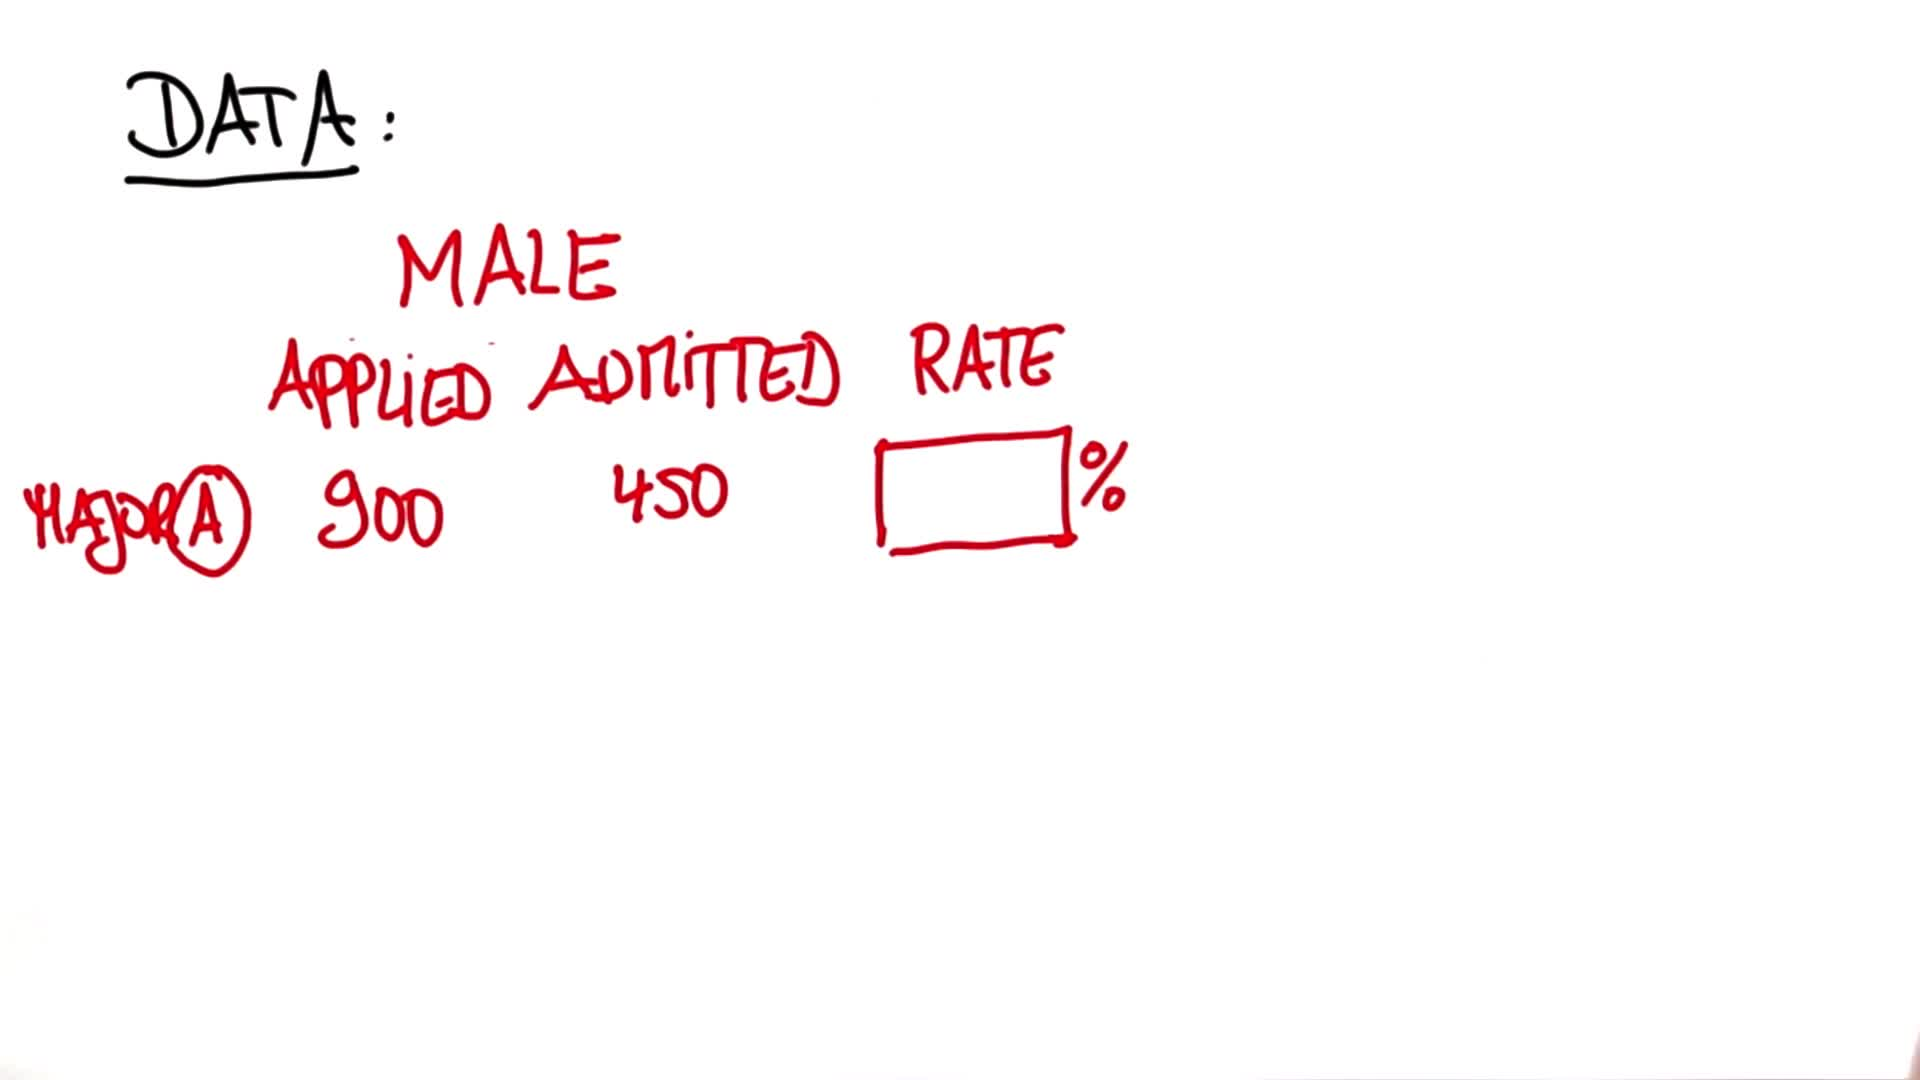 DATA:
MALE
APPLIED ADMITTED RATE
MAJOR A 900 450 %